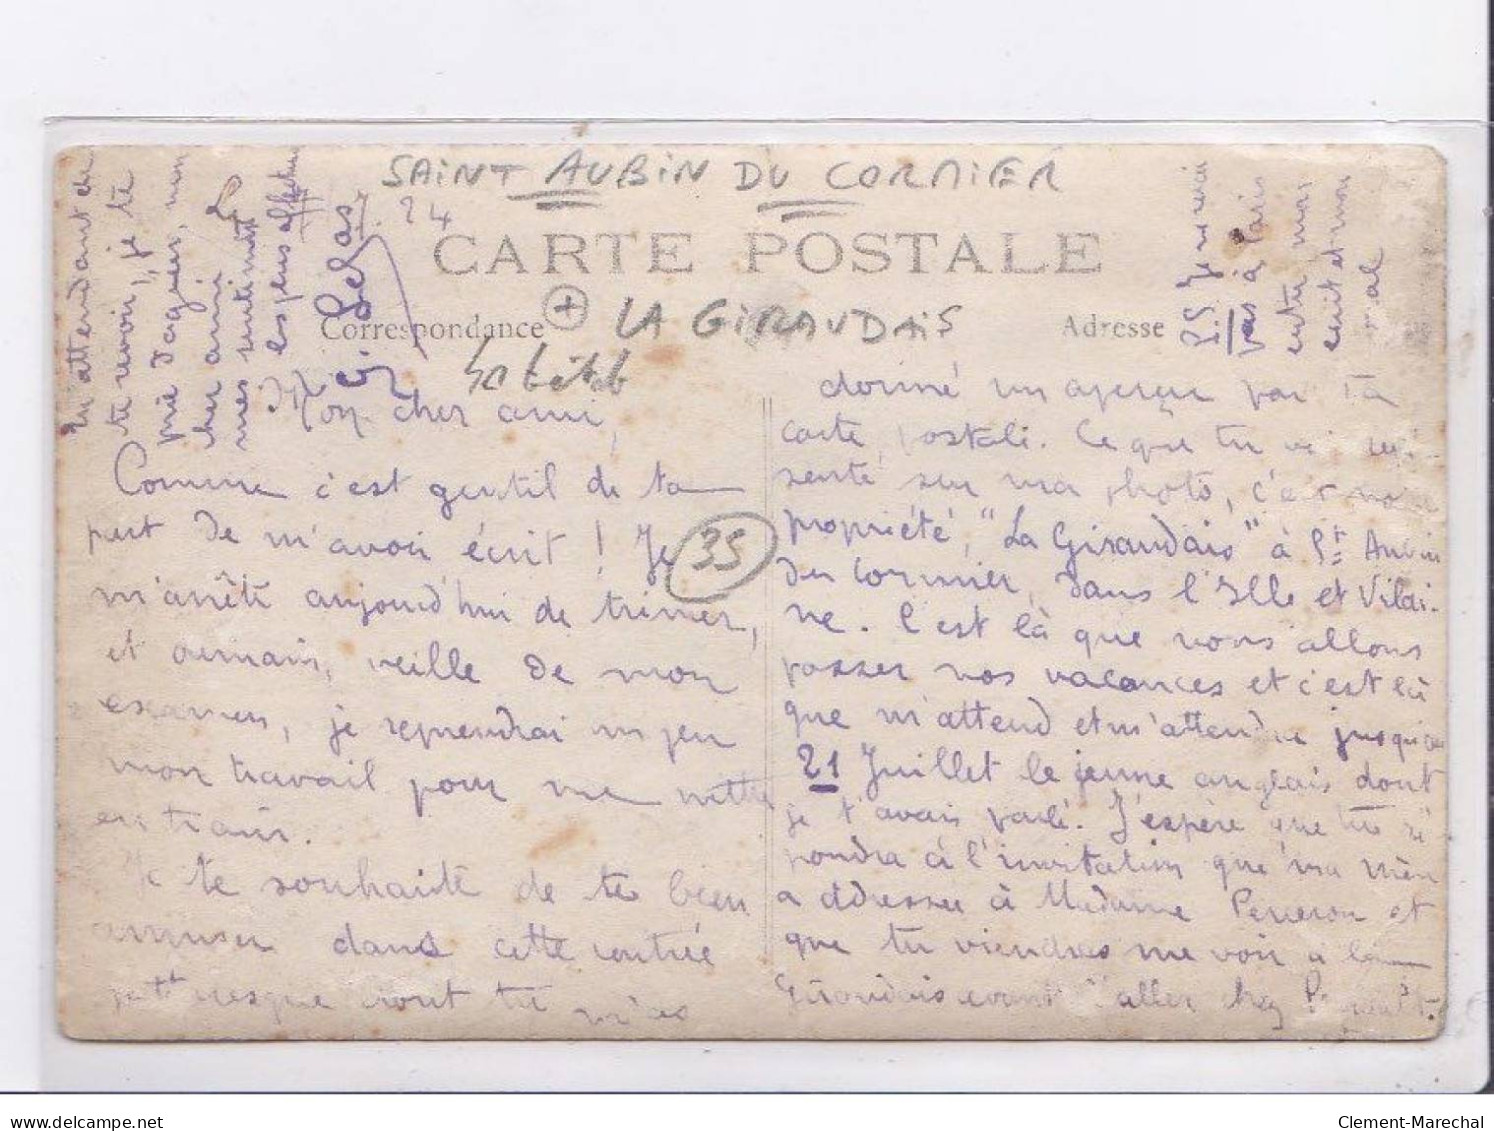 SAINT AUBIN DU CORMIER
24
CARTE POSTALE
Correspondance
LA GIRAUDAIS
Adresse
Mon cher ami,
Comme c'est gentil de ta
part de m'avoir écrit ! Je
35
m'arrête aujourd'hui de trimer,
et demain, veille de mon
examen, je reprendrai un peu
mon travail pour me mettre
en train.
Je te souhaite de te bien
amuser dans cette contrée
pittoresque dont tu m'as
donné un aperçu par ta
carte postale. Ce que tu vois
senté sur ma photo, c'est notre
propriété, "La Giraudais" à St Aubin
du Cormier, dans l'Ille et Vilai-
ne. C'est là que nous allons
passer nos vacances et c'est là
que m'attend et m'attendra jusqu'au
21 Juillet le jeune anglais dont
je t'avais parlé. J'espère que tu ré
pondra à l'invitation que ma mère
a adressée à Madame Perreron et
que tu viendras me voir à la
Giraudais avant d'aller chez
m'attendant de
te revoir, je te
prie d'agréer, mon
cher ami
mes sentiments
les plus affectueux
P.S. Je
vais à
entre mon
écrit et mon
oral
delcampe.net
Clement-Marechal